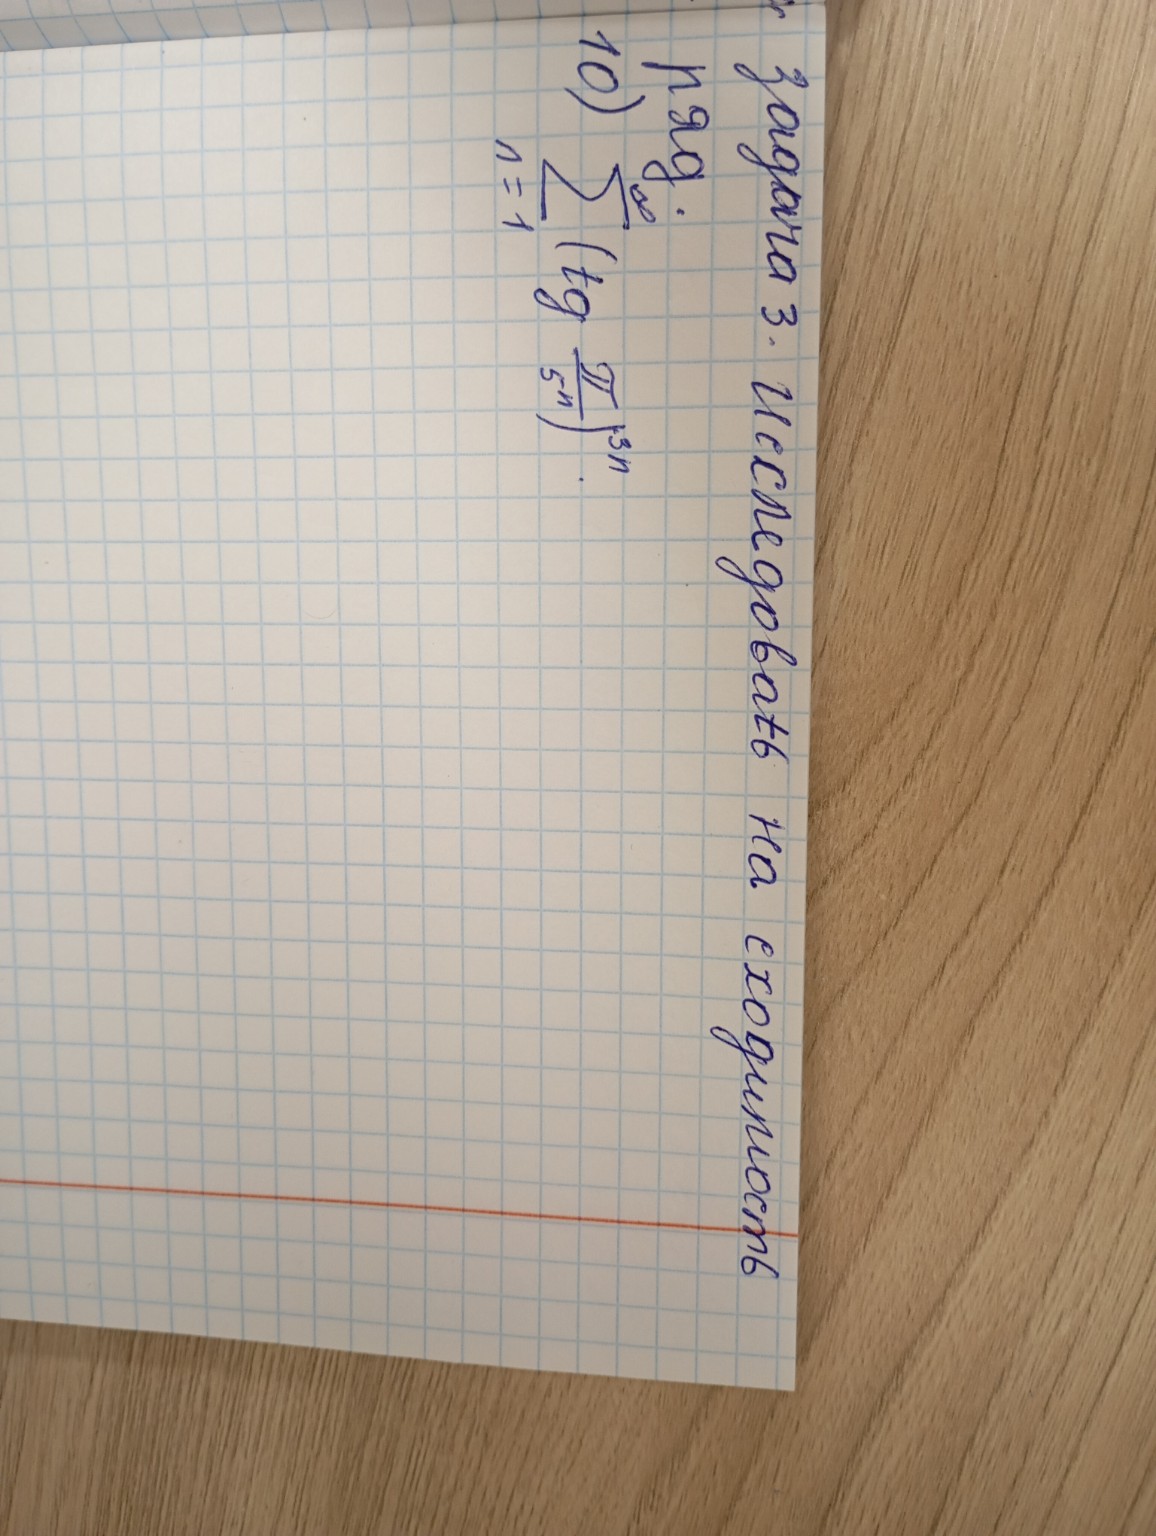 Задача 3. Исследовать на сходимость
ряд.
10) ∑_{n=1}^{∞} (tg π/5ⁿ)³ⁿ.